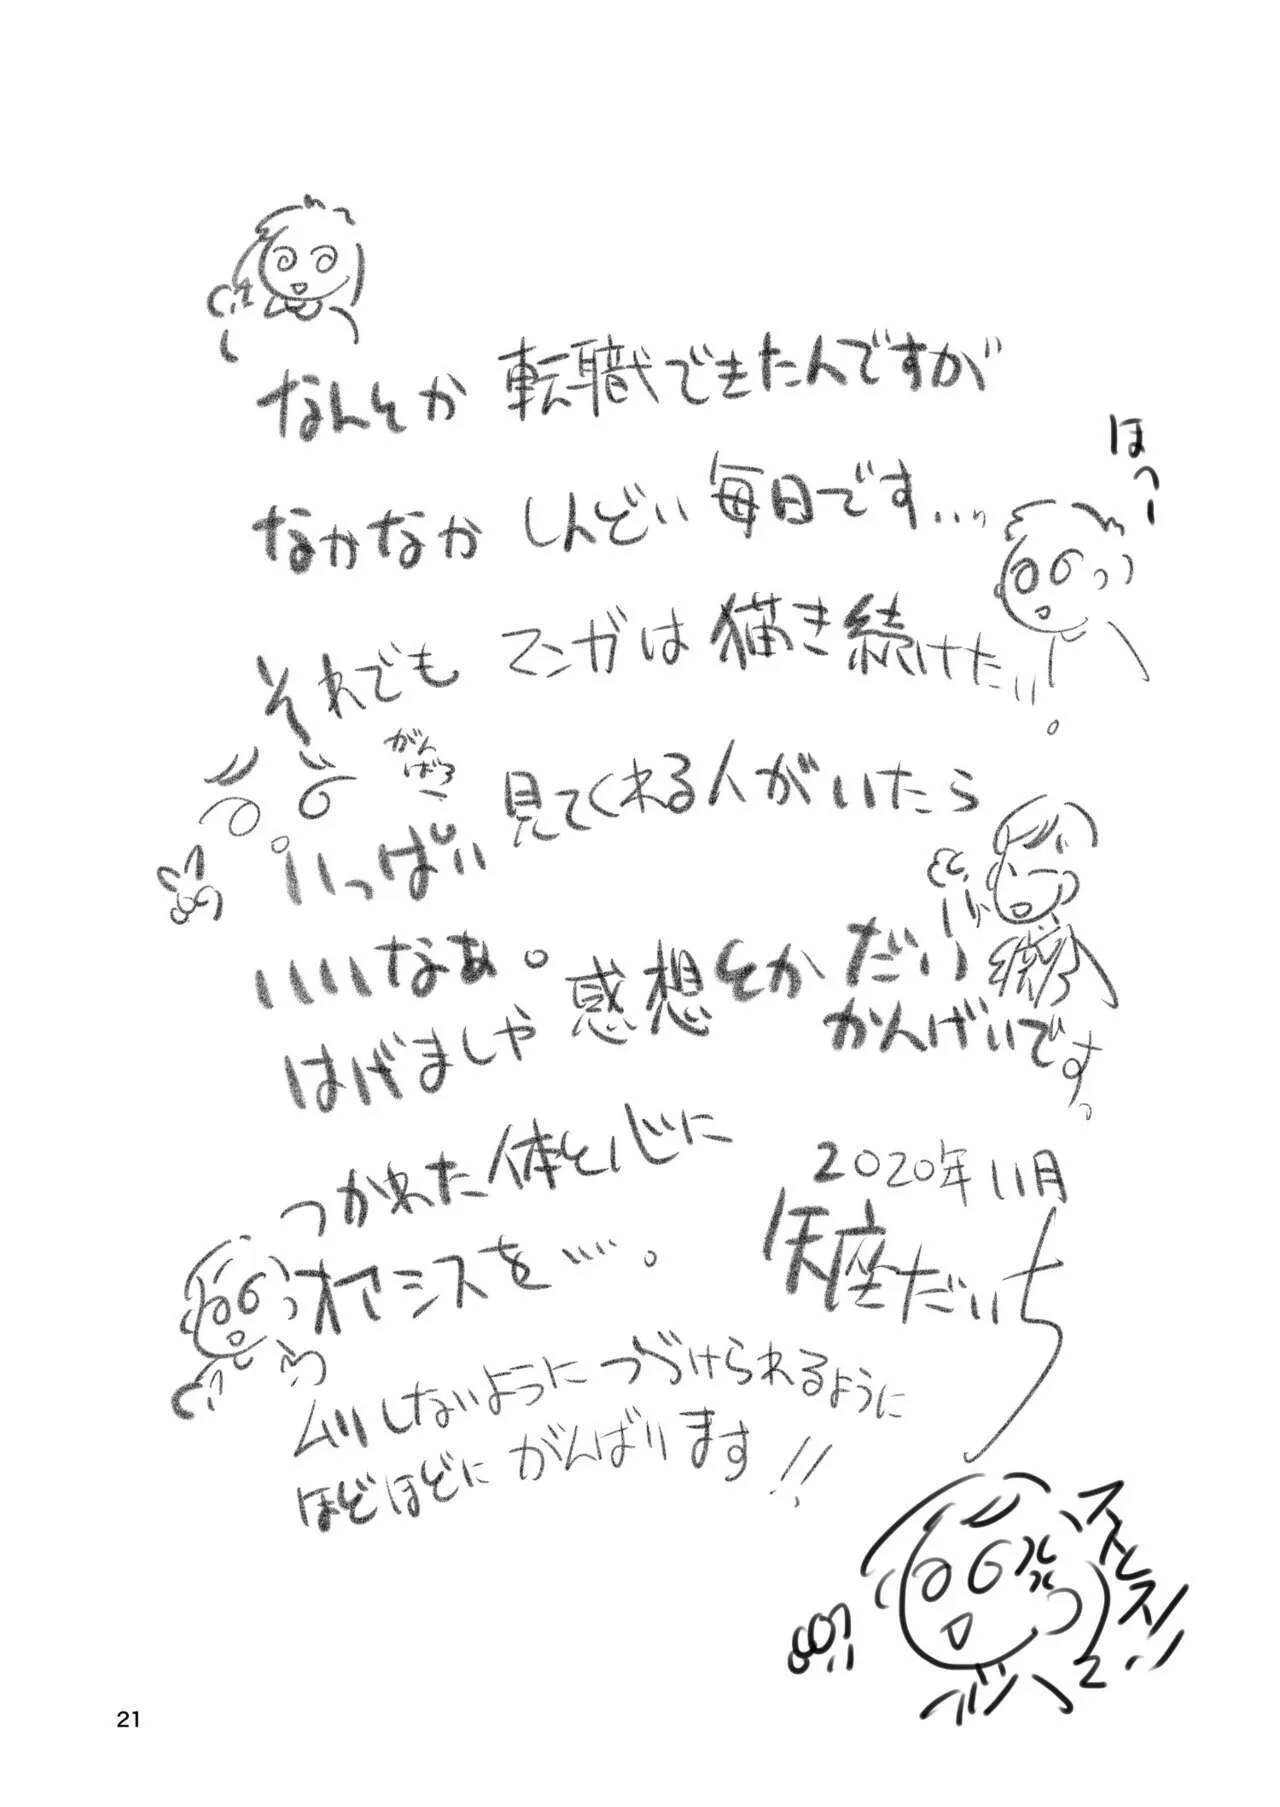 なんとか 転職できたんですが
ほっー
なかなか しんどい 毎日です...
それでも マンガは 描き続けたい。
がんばろー
いっぱい 見てくれる人がいたら
いいなぁ。
はげましや 感想とか だい
かんげいです。
つかれた 体と心に
オアシスを…。
2020年11月
矢座だいち
ムリしないように つづけられるように
ほどほどに がんばります!!
ストレス!!
21